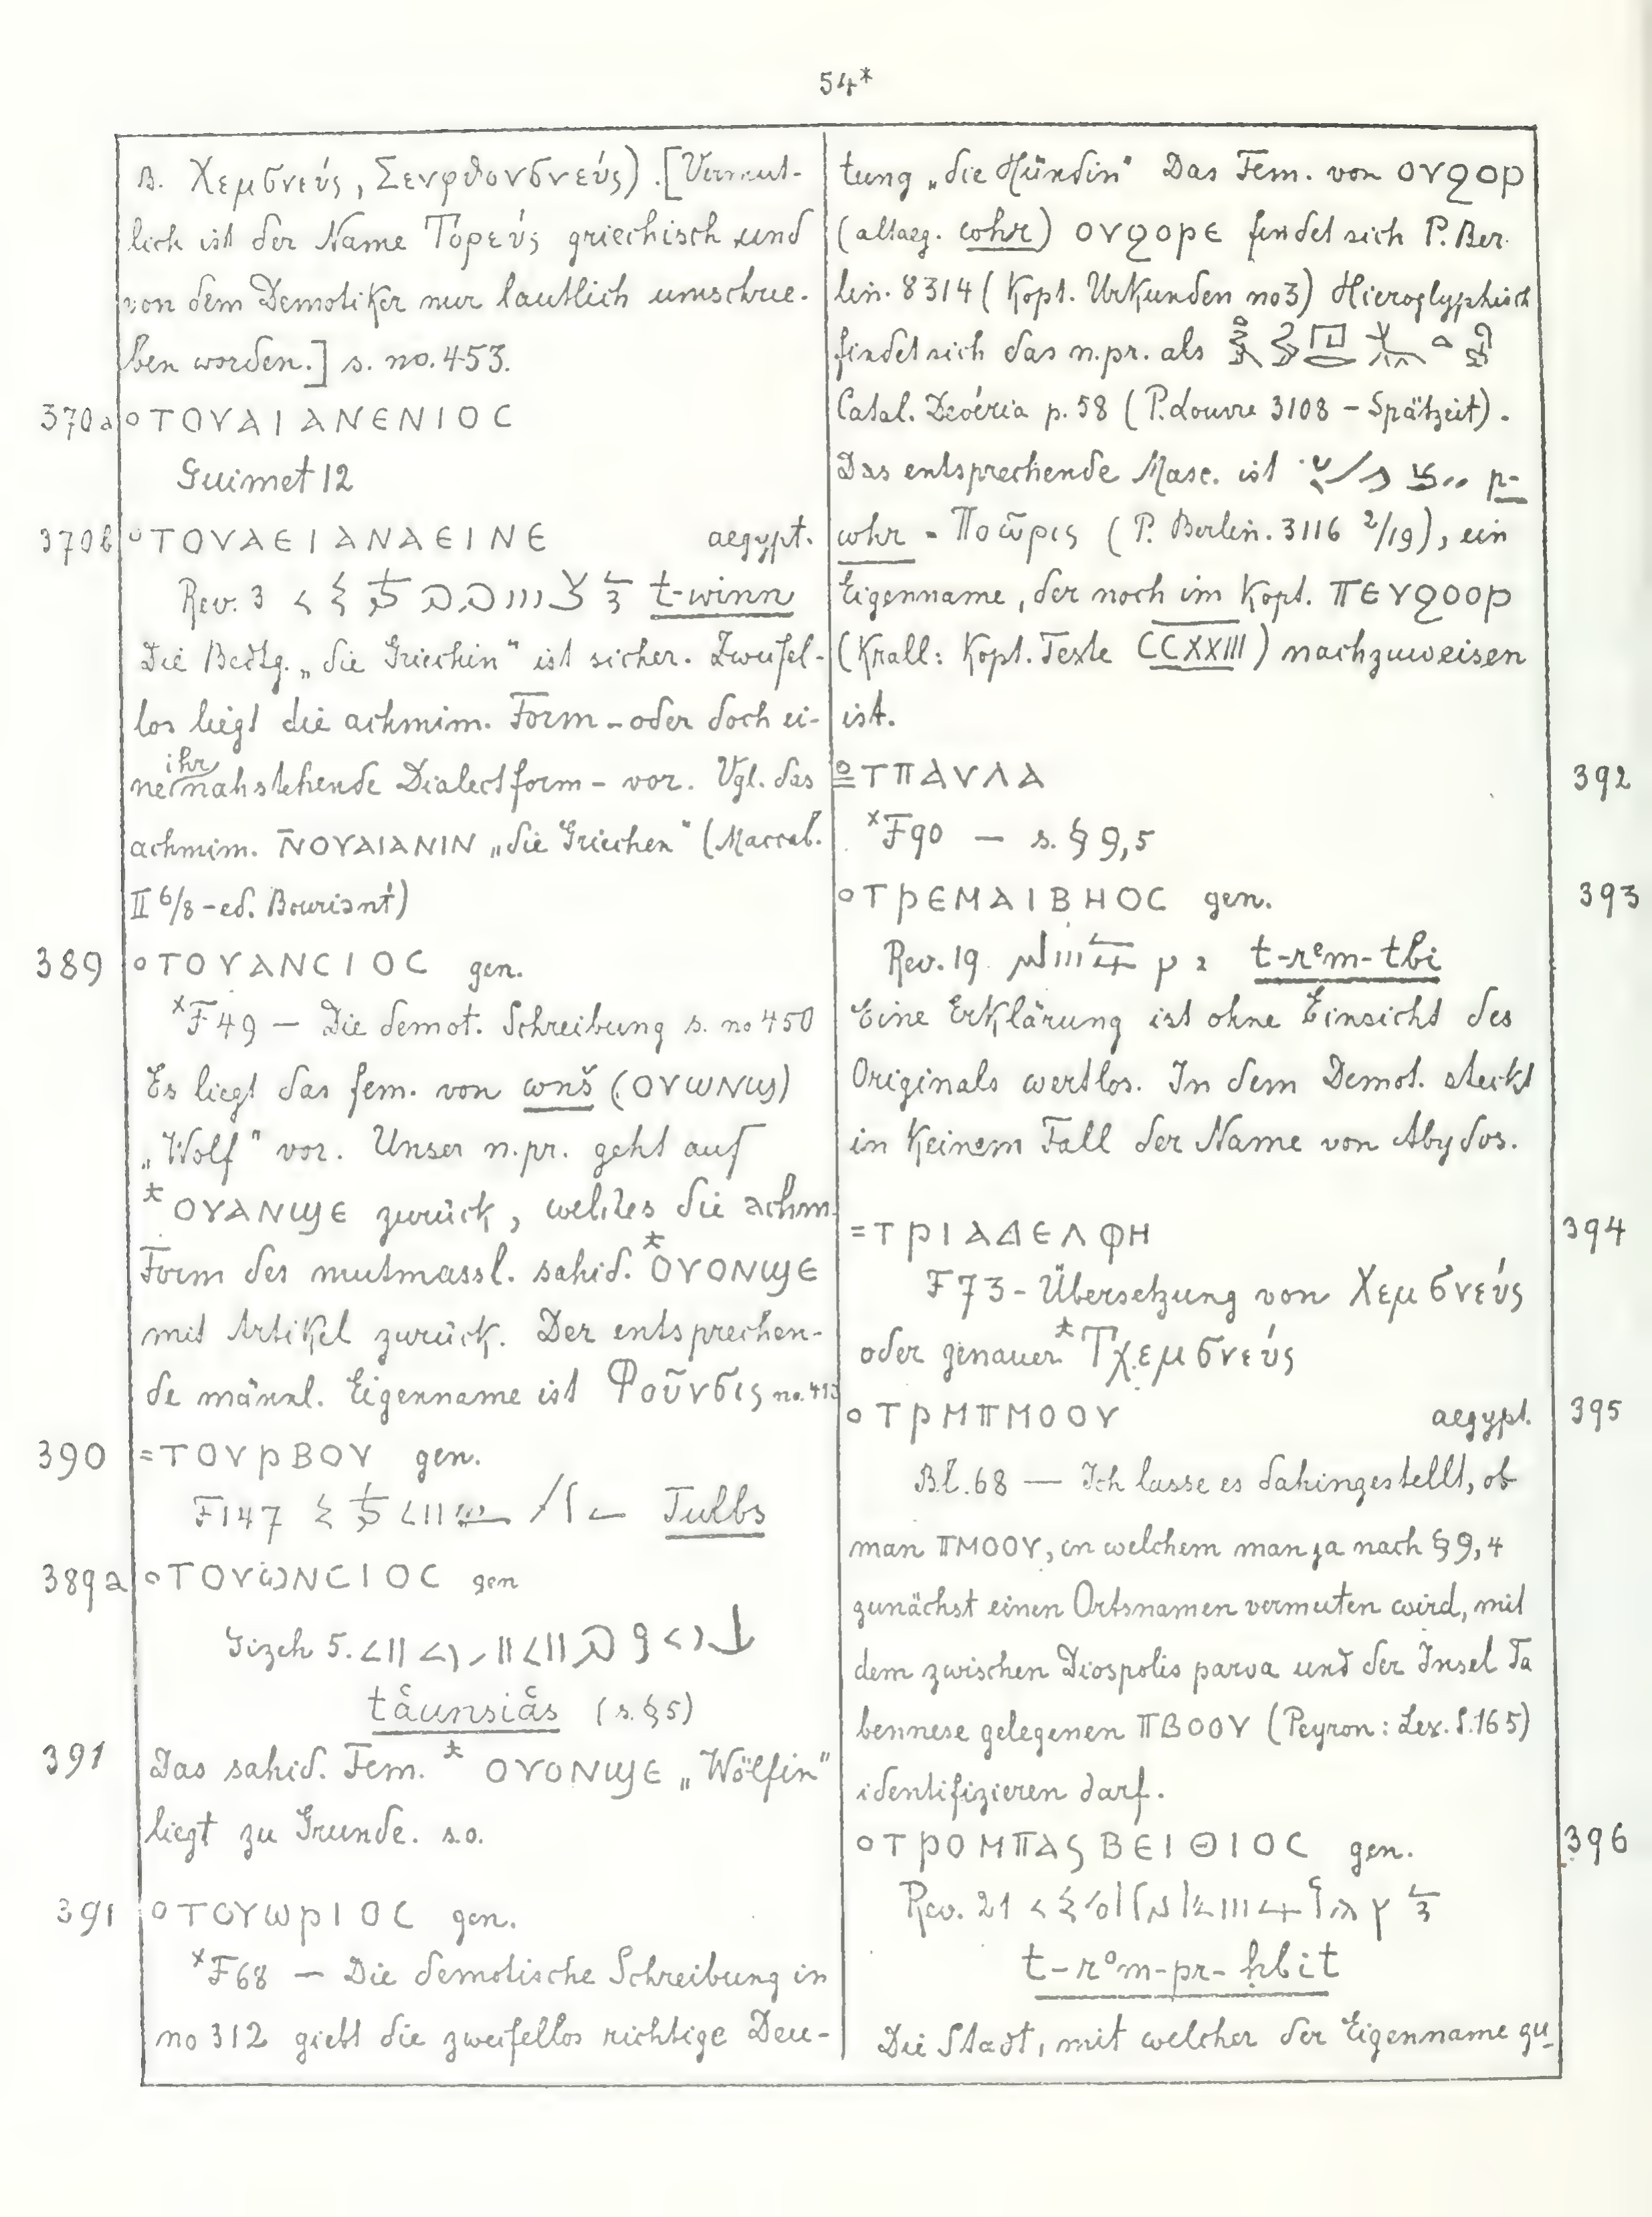 54*
B. Χεμσνεύς, Σενφθονσνεύς). [Vermut-
lich ist der Name Τορεύς griechisch und
von dem Demotiker nur lautlich umschrie-
ben worden.] s. no. 453.
370a °ΤΟΥΑΙΑΝΕΝΙΟC
Guimet 12
370b °ΤΟΥΑΕΙΑΝΑΕΙΝΕ aegypt.
Rev. 3 t-winn
Die Bedtg. „die Griechin" ist sicher. Zweifel-
los liegt die achmim. Form – oder doch ei-
ne ihr nahstehende Dialectform – vor. Vgl. das
achmim. N̄ΟΥΑΙΑΝΙΝ „die Griechen" (Maccab.
II 6/8 – ed. Bouriant)
389 °ΤΟΥΑΝCΙΟC gen.
×F49 — Die demot. Schreibung s. no 450
Es liegt das fem. von wnš (ⲞⲨⲰⲚϢ)
„Wolf" vor. Unser n.pr. geht auf
*ⲞⲨⲀⲚϢⲈ zurück, welches die achm.
Form des mutmassl. sahid. *ⲞⲨⲞⲚϢⲈ
mit Artikel zurück. Der entsprechen-
de männl. Eigenname ist Φοῦνσις no. 413
390 =ΤΟΥΡΒΟΥ gen.
F147 Tulbs
389a °ΤΟΥΩΝCΙΟC gen
Gizeh 5.
tåunsiås (s. §5)
391 Das sahid. Fem. *ⲞⲨⲞⲚϢⲈ „Wölfin"
liegt zu Grunde. s.o.
391 °ΤΟΥωΡΙΟC gen.
×F68 — Die demotische Schreibung in
no 312 giebt die zweifellos richtige Deu-
tung „die Hündin" Das Fem. von ⲞⲨϨⲞⲢ
(altaeg. whr) ⲞⲨϨⲞⲢⲈ findet sich P. Ber-
lin. 8314 (Kopt. Urkunden no3) Hieroglyphisch
findet sich das n.pr. als
Catal. Devéria p. 58 (P. Louvre 3108 – Spätzeit).
Das entsprechende Masc. ist p-
whr = Ποῶρις (P. Berlin. 3116 2/19), ein
Eigenname, der noch im Kopt. ⲠⲈⲨϨⲞⲞⲢ
(Krall: Kopt. Texte CCXXIII) nachzuweisen
ist.
°ΤΠΑΥΛΑ 392
×F90 — s. § 9,5
°ΤΡΕΜΑΙΒΗΟC gen. 393
Rev. 19 t-rem-tbi
Eine Erklärung ist ohne Einsicht des
Originals wertlos. In dem Demot. steckt
in keinem Fall der Name von Abydos.
=ΤΡΙΑΔΕΛΦΗ 394
F73 – Übersetzung von Χεμσνεύς
oder genauer *Τχεμσνεύς
°ΤΡΜΠΜΟΟΥ aegypt. 395
Bl. 68 — Ich lasse es dahingestellt, ob
man ΠΜΟΟΥ, in welchem man ja nach § 9,4
zunächst einen Ortsnamen vermuten wird, mit
dem zwischen Diospolis parva und der Insel Ta
bennese gelegenen ΠΒΟΟΥ (Peyron: Lex. S. 165)
identifizieren darf.
°ΤΡΟΜΠΑϚΒΕΙΘΙΟC gen. 396
Rev. 21
t-r°m-pr-ḥbit
Die Stadt, mit welcher der Eigenname zu-